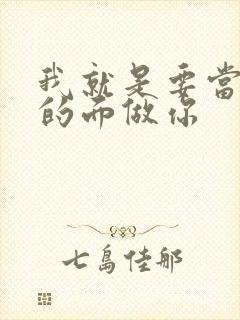 我就是要當
的而做你
七島佳那